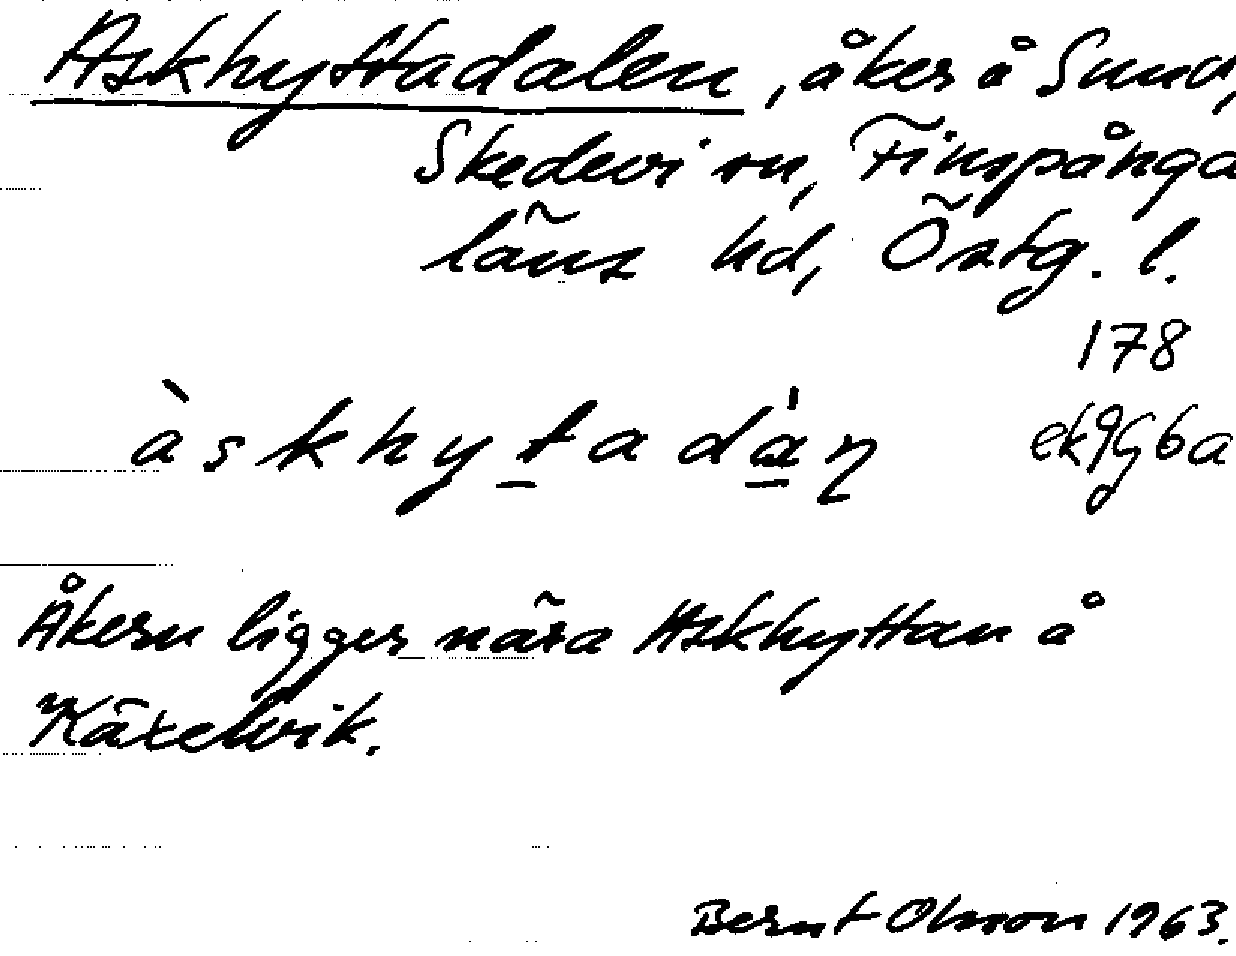 Askhyttadalen, åker å Sund,
Skedevi sn, Finspånga
läns hd, Östg. l.
178
àskhytadàn ek 9G 6a
Åkern ligger nära Askhyttan å
Käxelvik.
Bernt Olsson 1963.